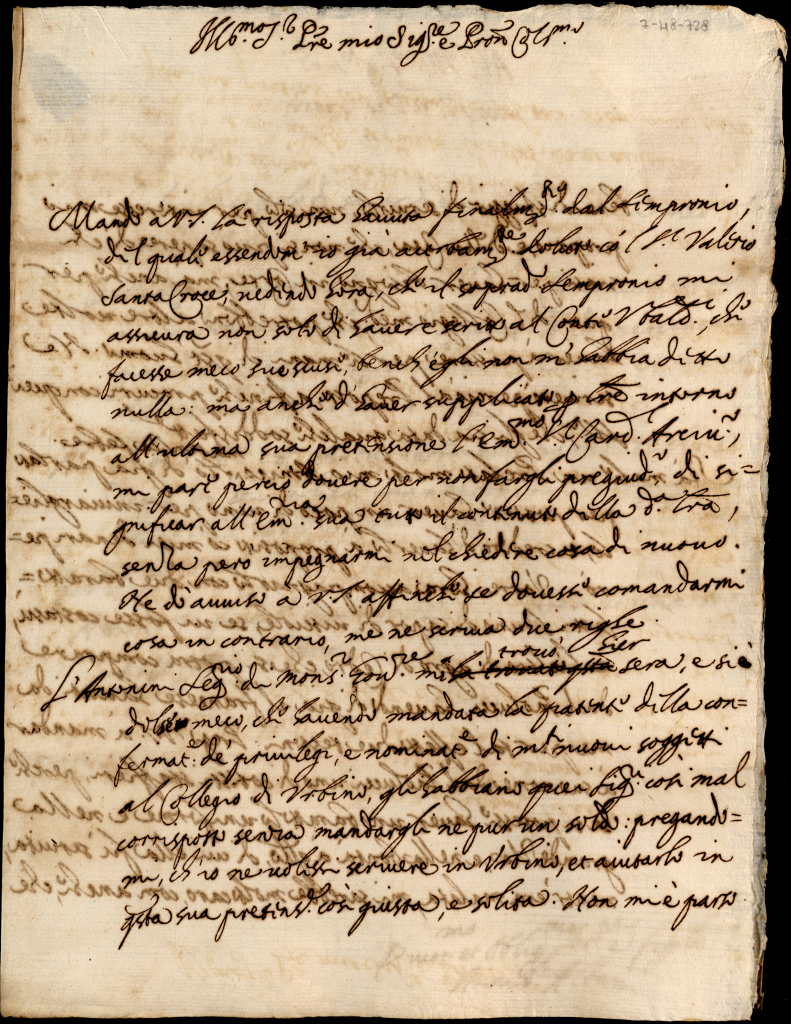 7-48-728
Ill.mo S.r P̃re mio Sig.re e Pron̄ Col.mo
Mando a V.S. la risposta havuta finalm.te dal Sempronio,
del quale essendomi io già acerbam.te doluto cō l S.r Valerio
Santa Croce; vedendo hora, che il soprad.o Sempronio mi
assicura non solo di havere scritto al Conte Ubald.i, che
facesse meco sue scuse, bench'egli non m'habbia detto
nulla: ma anche d'haver supplicato p l̃re intorno
all'ultima sua pretensione l'Em.mo S.r Card.
mi pare perciò dovere per non fargli pregiud.o di si=
gnificar all'Em.za sua tutto il contenuto della d.a l̃ra,
senza però impegnarmi nel chiedere cosa di nuovo.
Ne dò avviso a V.S. affinche se dovesse comandarmi
cosa in contrario, me ne scriva due righe.
L'Antonini Seg.rio di Mons.r Gov.re mi trovò hier sera, e si è
dolse meco, che havendo mandata la patente della con=
fermat.e de' privilegi, e nominat.e di m.ti nuovi soggetti
al Collegio di Urbino, gli habbiano quei Sig.ri così mal
corrisposto senza mandargli ne pur un soldo: pregando=
mi, ch'io ne volessi scrivere in Urbino, et aiutarlo in
q̃sta sua pretens.e così giusta, e solita. Non mi è parso